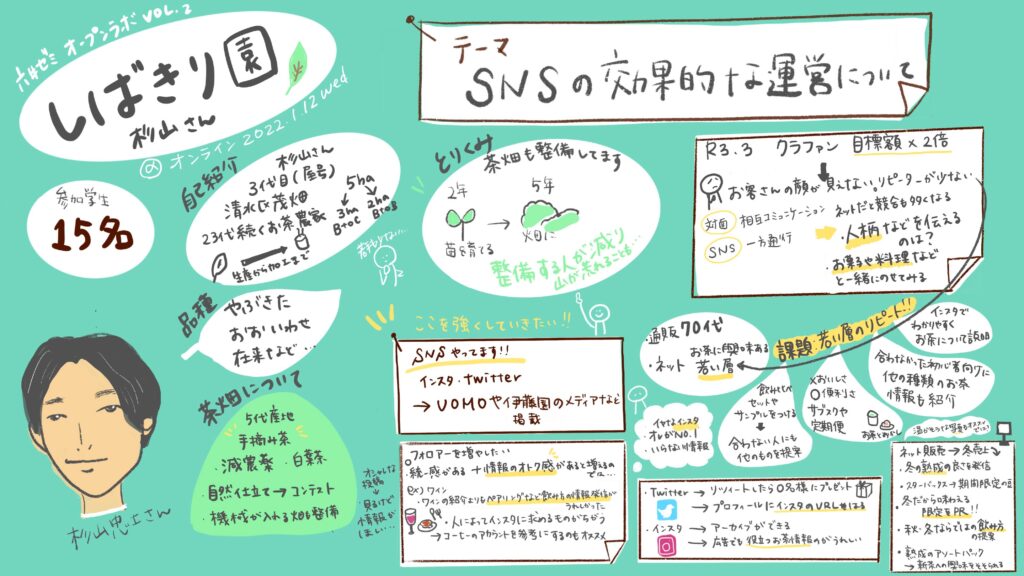 六井ゼミ オープンラボ VOL.2
しばきり園
杉山さん
@ オンライン 2022.1.12 wed
テーマ
SNSの効果的な運営について
参加学生
15名
自己紹介
杉山さん
3代目(屋号)
清水区茂畑
23代続くお茶農家
生産から加工まで
5ha
3ha
BtoC
2ha
BtoB
とりくみ
茶畑も整備してます
2年
苗を育てる
5年
畑に
整備する人が減り
山が荒れることも…
R3.3 クラファン 目標額×2倍
お客さんの顔が見えない。リピーターが少ない
対面 相互コミュニケーション
SNS 一方通行
ネットだと競合も多くなる
・人柄などを伝える
のは?
・お菓子や料理など
と一緒にのせてみる
品種
やぶきた
おおいわせ
在来など…
茶畑について
5代産地
手摘み茶
減農薬・白葉茶
・自然仕立て→コンテスト
・機械が入れる畑も整備
杉山
さん
ここを強くしていきたい!!
SNSやってます!!
インスタ・twitter
→UOMOや伊藤園のメディアなど
掲載
・通販 70代
お茶に興味ある
・ネット 若い層
課題:若い層のリピート!!
インスタで
わかりやすく
お茶について説明
合わなかった初心者向けに
他の種類のお茶
情報も紹介
飲みくらべ
セットや
サンプルをつける
↓
合わない人にも
他のものを提案
×おいしさ
○便利さ
サブスクや
定期便
お茶とおかし
イヤなインスタ
・オレがNO.1
・いらない情報
オシャレな
投稿
↓
見るけど
情報が
ほしい…
フォロアーを増やしたい
・統一感がある+情報のオトク感があると増えるの
では…
ex)ワイン
・ワインの紹介よりもペアリングなど飲み方の情報発信が
うれしかった
・人によってインスタに求めるものがちがう
→コーヒーのアカウントを参考にするのもオススメ
・Twitter→リツイートしたら○名様にプレゼント
→プロフィールにインスタのURLをはる
・インスタ→アーカイブができる
→広告でも役立つお茶情報のがうれしい
ネット販売→冬売上
・冬の熟成の良さを発信
・スターバックス→期間限定の
・冬だから味わえる
限定をPR!!
・秋・冬ならではの飲み方
の提案
・熟成のアソートパック
→新茶への興味をそそられる